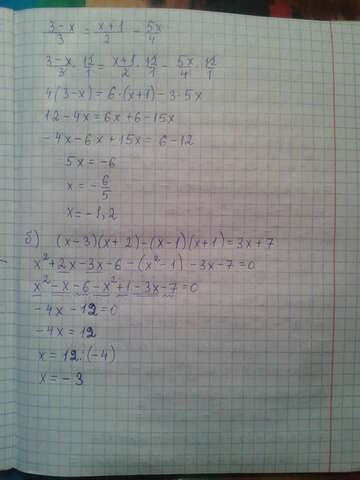 (3-x)/3 = (x+1)/2 - 5x/4
(3-x)/3 · 12/1 = (x+1)/2 · 12/1 - 5x/4 · 12/1
4(3-x)=6·(x+1)-3·5x
12-4x=6x+6-15x
-4x-6x+15x=6-12
5x=-6
x=-6/5
x=-1,2
б) (x-3)(x+2)-(x-1)(x+1)=3x+7
x²+2x-3x-6-(x²-1)-3x-7=0
x²-x-6-x²+1-3x-7=0
-4x-12=0
-4x=12
x=12:(-4)
x=-3